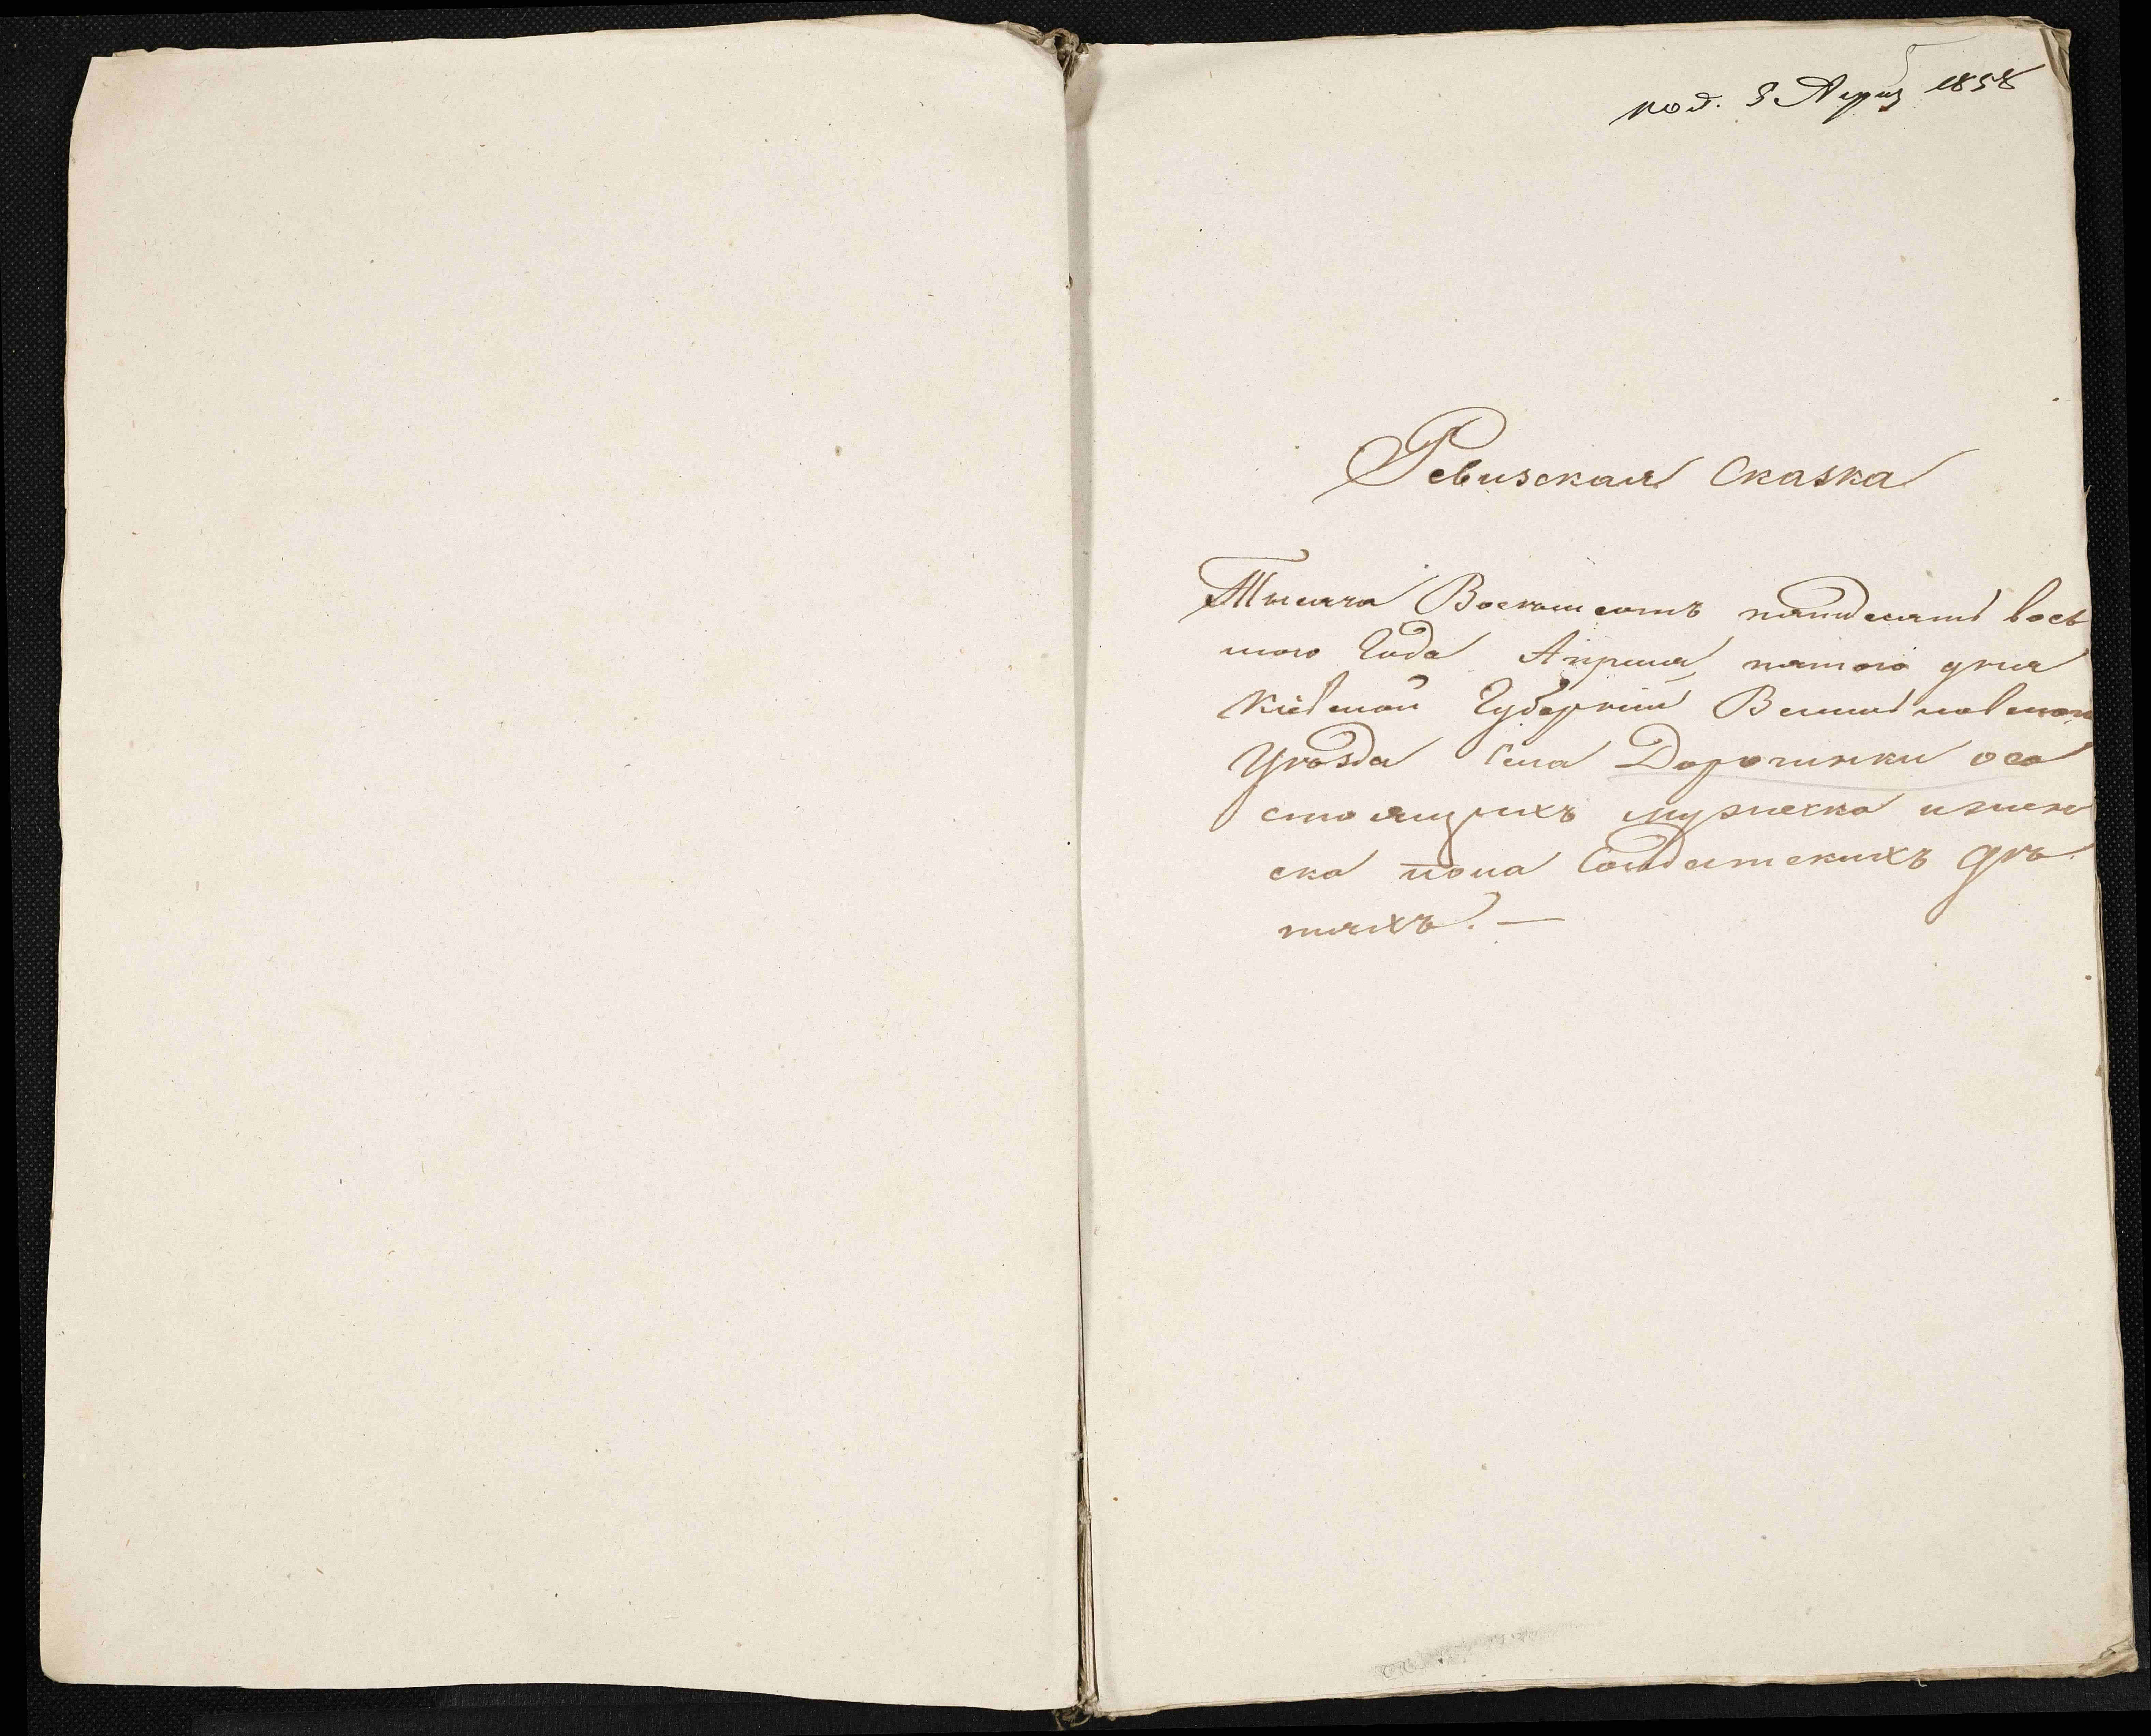 под. 8 Апрѣ 1858
Ревизская Сказка
Тысяча Восемьсотъ пятидесятъ вось
мого Года Апреля пятого дня
Кіевской Губерніи Васильковскаго
Уѣзда Села Дорогинки осо
стоящихъ мужеска и жен
ска пола Солдатскихъ дѣ
тяхъ. —